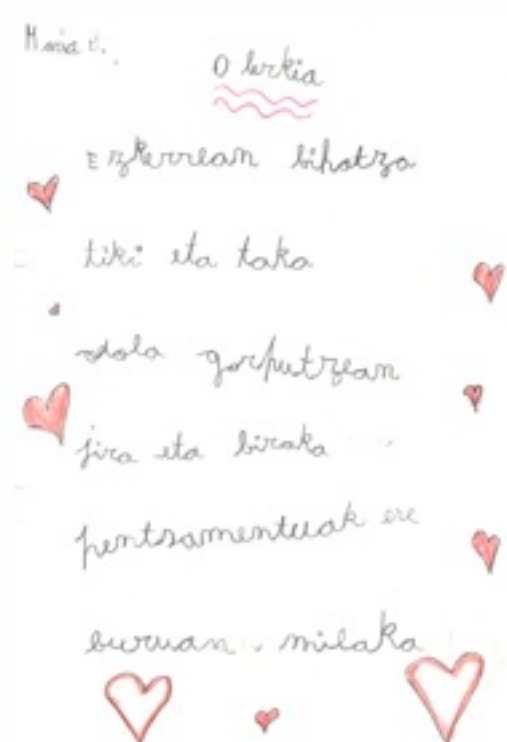 Olerkia
Ezkerrean bihotza
tiki eta taka
odola gorputzean
jira eta biraka
pentsamentuak ere
buruan milaka